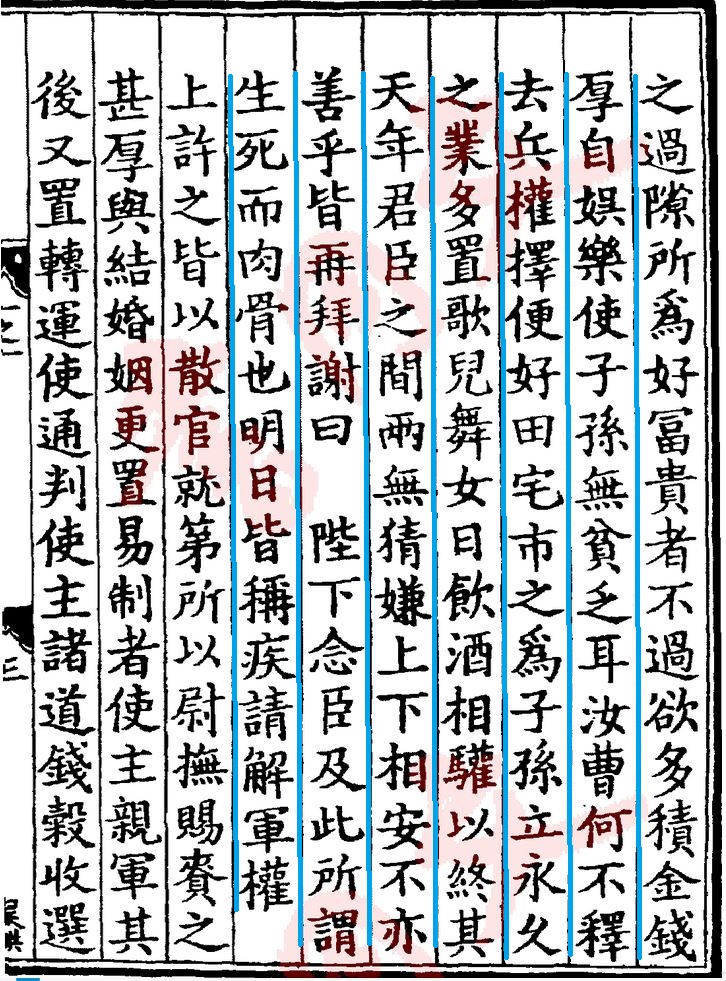 之過隙所爲好冨貴者不過欲多積金錢
厚自娯樂使子孫無貧乏耳汝曹何不釋
去兵權擇便好田宅市之爲子孫立永久
之業多置歌兒舞女日飲酒相驩以終其
天年君臣之間兩無猜嫌上下相安不亦
善乎皆再拜謝曰　陛下念臣及此所謂
生死而肉骨也明日皆稱疾請解軍權
上許之皆以散官就第所以尉撫賜賚之
甚厚與結婚姻更置易制者使主親軍其
後又置轉運使通判使主諸道錢穀收選